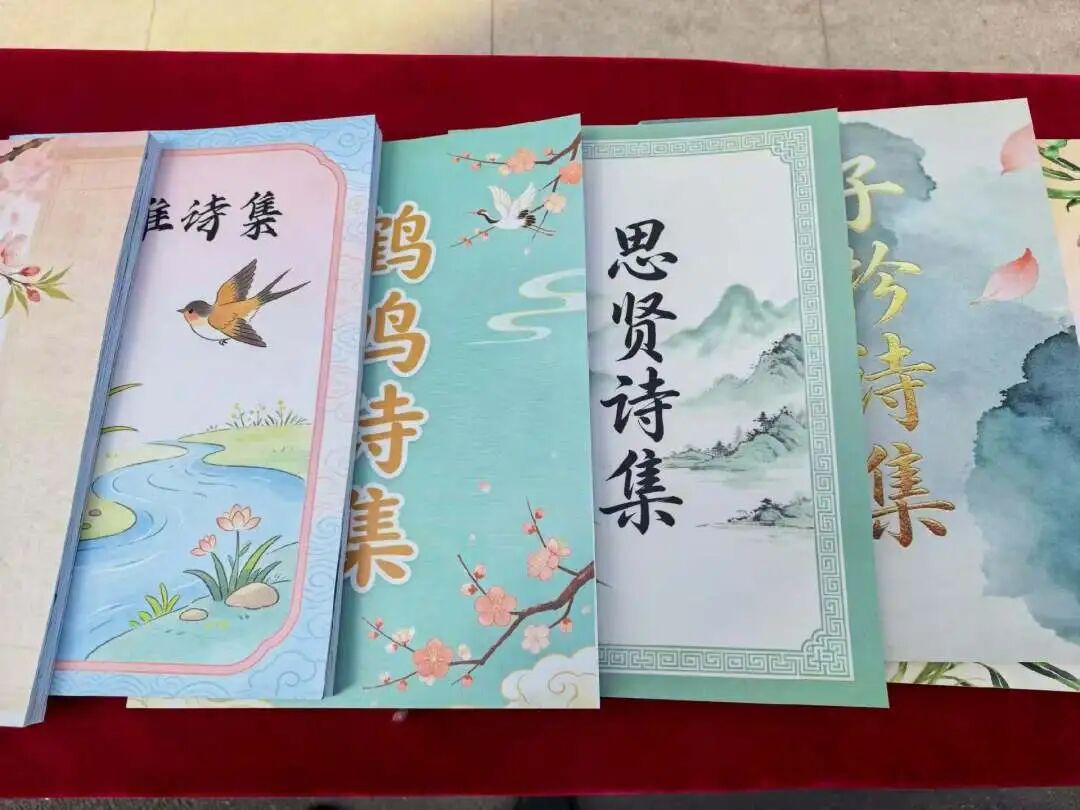 诗集
鹤鸣诗集
思贤诗集
子衿诗集